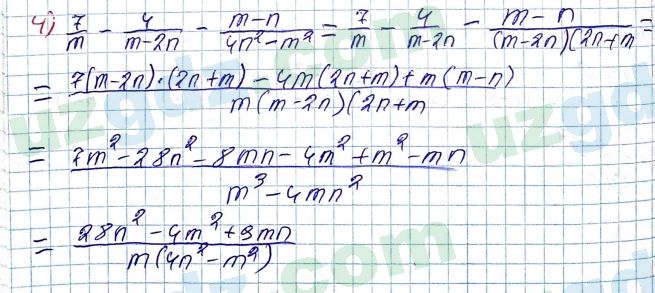 4) 7/m - 4/(m-2n) - (m-n)/(4n²-m²) = 7/m - 4/(m-2n) - (m-n)/((m-2n)(2n+m =
= (7(m-2n)·(2n+m) - 4m(2n+m) + m(m-n))/(m(m-2n)(2n+m
= (7m² - 28n² - 8mn - 4m² + m² - mn)/(m³ - 4mn²)
= (28n² - 4m² + 9mn)/(m(4n² - m²))